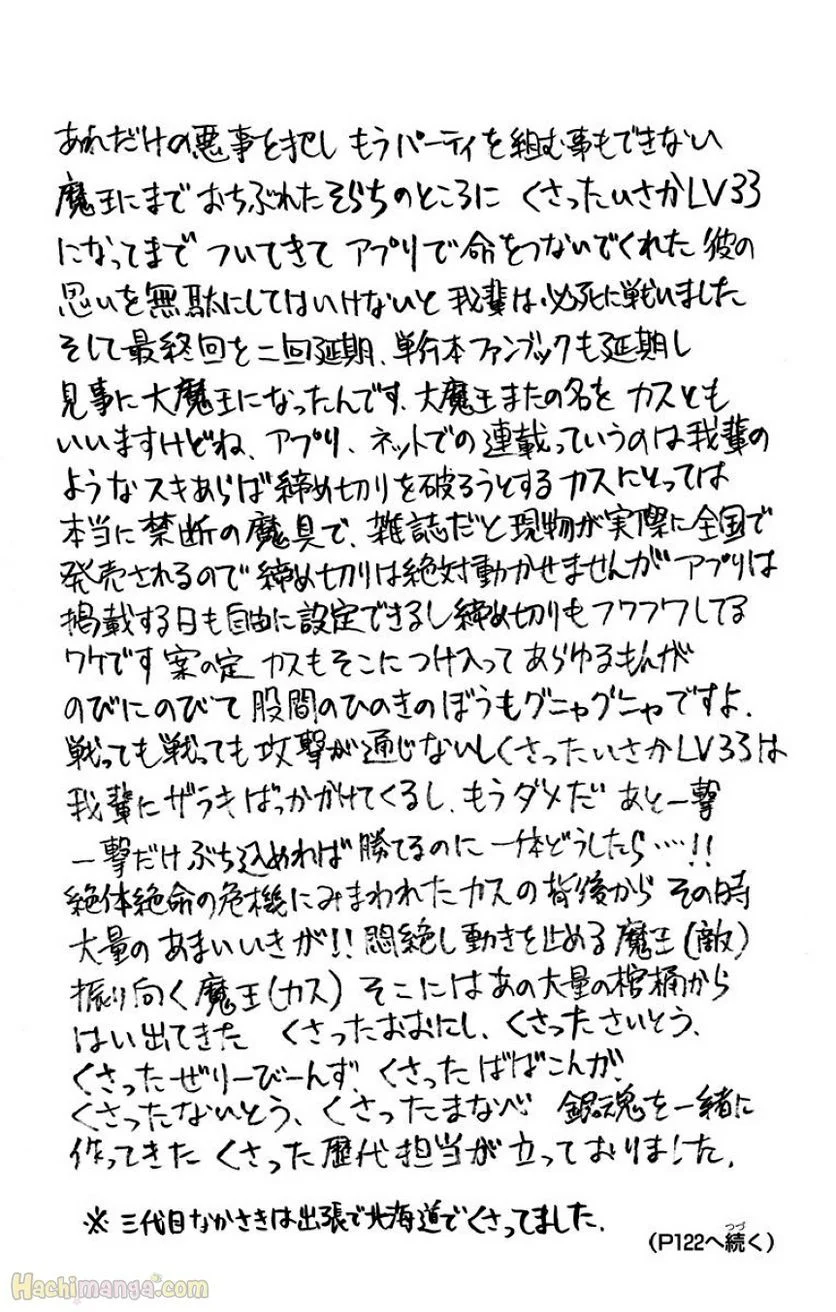 あれだけの悪事を犯し もうパーティを組む事もできない
魔王にまで おちぶれたそらちのところに くさったいさかLV33
になってまで ついてきて アプリで命をつないでくれた 彼の
思いを無駄にしてはいけないと 我輩は必死に戦いました
そして最終回を二回延期、単行本ファンブックも延期し
見事に大魔王になったんです、大魔王またの名を カスとも
いいますけどね、アプリ、ネットでの連載っていうのは我輩の
ようなスキあらば締め切りを破ろうとするカスにとっては
本当に禁断の魔具で、雑誌だと現物が実際に全国で
発売されるので締め切りは絶対動かせませんがアプリは
掲載する日も自由に設定できるし締め切りもフワフワしてる
ワケです 案の定 カスもそこにつけ入って あらゆるもんが
のびにのびて 股間のひのきのぼうもグニャグニャですよ.
戦っても戦っても攻撃が通じないしくさったいさかLV33は
我輩にザラキばっかかけてくるし、もうダメだ あと一撃
一撃だけぶち込めれば勝てるのに 一体どうしたら…!!
絶体絶命の危機にみまわれたカスの背後から その時
大量の あまいいきが!! 悶絶し動きを止める魔王(敵)
振り向く魔王(カス) そこにはあの大量の棺桶から
はい出てきた くさったおおにし、くさったさいとう、
くさったぜりーびーんず、くさったばばこんが、
くさったないとう、くさったまなべ 銀魂を一緒に
作ってきた くさった歴代担当が立っておりました.
※ 三代目なかさきは出張で北海道でくさってました.
(P122へ続く)
つづ
Hachimanga.com